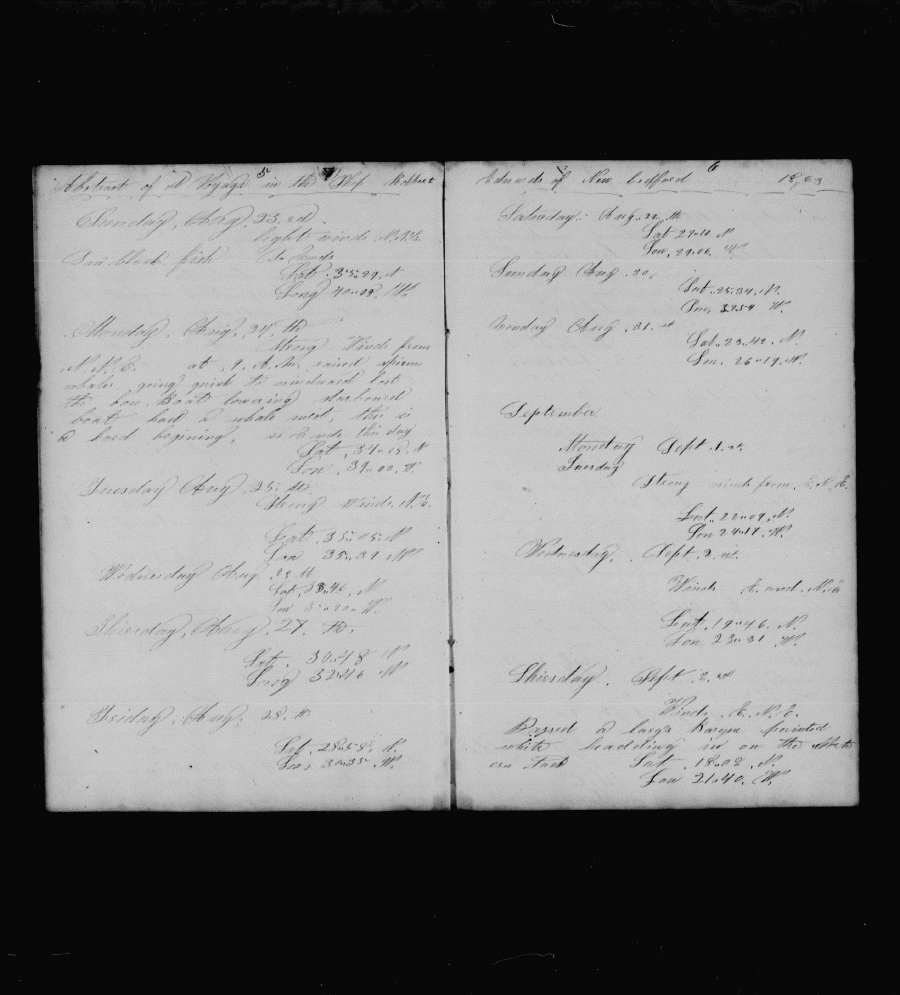 5
Abstract of a Voyage in the Ship Robert
Sunday, Aug. 23. rd
light winds N.
Saw black fish So Ends
Lat. 35..29. N
Long 40..09. W.
Monday, Aug. 24 th
Strong Winds from
N. N. E. at 9. A. M. raised sperm
whales going quick to windward lost
the bow Boat lowering starboard
boat had a whale this is
a hard begining, so Ends this day
Lat. 34..15. N
Lon. 39..00. W
Tuesday Aug. 25. th
Strong Winds. N. E.
Lat. 35..05. N
Lon 35..31 W
Wednesday Aug
Lat. 33.46. N
Lon W.
Thirsday, Aug 27. th.
Lat. 30..48 N
Long 32..46 W
Friday, Aug. 28. th
Lat. 28..58. N.
Lon. W.
6
Edwards of New Bedford 1863
Saturday. Aug. th
Lat 27..10 N
Lon. 29..06. W
Sunday Aug. 30.
Lat. 25.34. N.
Lon. W.
monday Aug. 31. st
Lat. 23..42. N.
Lon. 26..19. W.
September
Monday Sept. 1. st
Tuesday
Strong winds from. E. N. E.
Lat. 22..09. N.
Lon 24..17. W.
Wednesday. Sept. 2. st.
Winds E. and. N. E
Lat. 19..46. N.
Lon 23..31 W.
Thirsday. Sept. st
Winds. E. N. E.
Passed a large painted
white headding in on the
ern tack Lat. 18..08. N.
Lon 21..40. W.